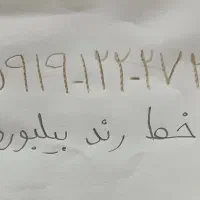 ۹۱۹-۱۲۲-۲۷
خط رند بیلبور